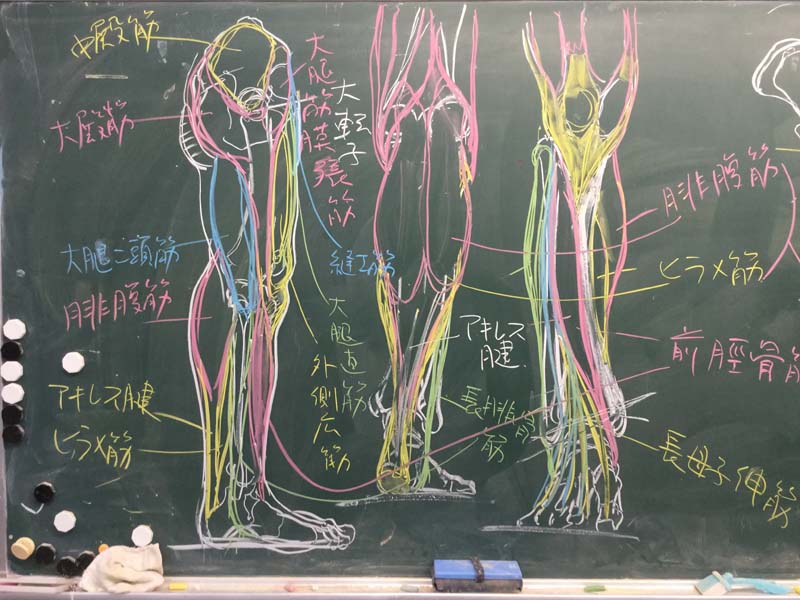 中殿筋
大殿筋
大腿筋膜張筋
大転子
大腿二頭筋
腓腹筋
縫工筋
大腿直筋
外側広筋
アキレス腱
ヒラメ筋
アキレス腱
長腓骨筋
腓腹筋
ヒラメ筋
前脛骨筋
長母子伸筋